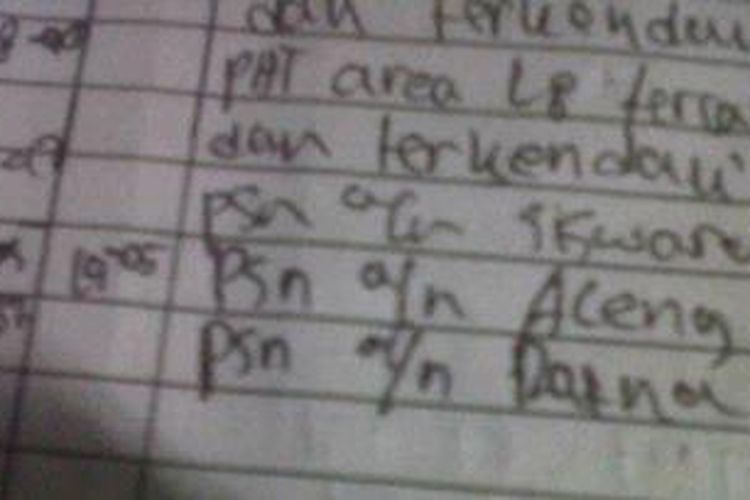 dan terkendali
PAT area L8
dan terkendali
Psn a/n
19-05 Psn a/n Aceng
Psn a/n Darna